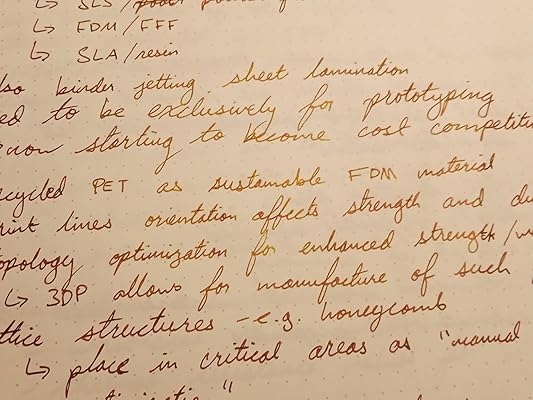 ↳ SLS/
↳ FDM/FFF
↳ SLA/resin
lso binder jetting sheet lamination
ed to be exclusively for prototyping
now starting to become cost competiti
cycled PET as sustainable FDM material
rint lines orientation affects strength and du
opology optimization for enhanced strength/w
↳ 3DP allows for manufacture of such
ttice structures - e.g. honeycomb
↳ place in critical areas as "manual